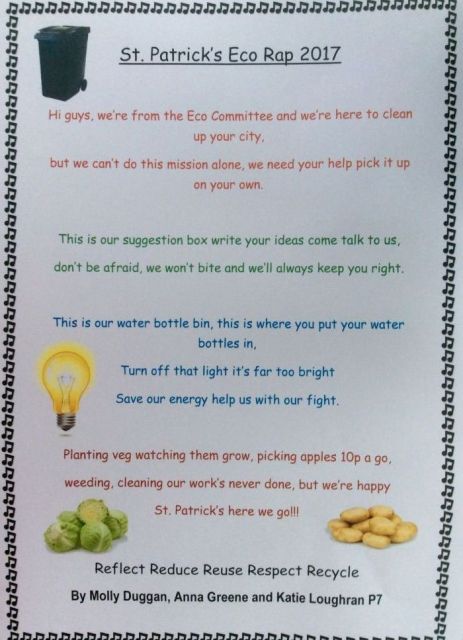 St. Patrick's Eco Rap 2017
Hi guys, we're from the Eco Committee and we're here to clean
up your city,
but we can't do this mission alone, we need your help pick it up
on your own.
This is our suggestion box write your ideas come talk to us,
don't be afraid, we won't bite and we'll always keep you right.
This is our water bottle bin, this is where you put your water
bottles in,
Turn off that light it's far too bright
Save our energy help us with our fight.
Planting veg watching them grow, picking apples 10p a go,
weeding, cleaning our work's never done, but we're happy
St. Patrick's here we go!!!
Reflect Reduce Reuse Respect Recycle
By Molly Duggan, Anna Greene and Katie Loughran P7